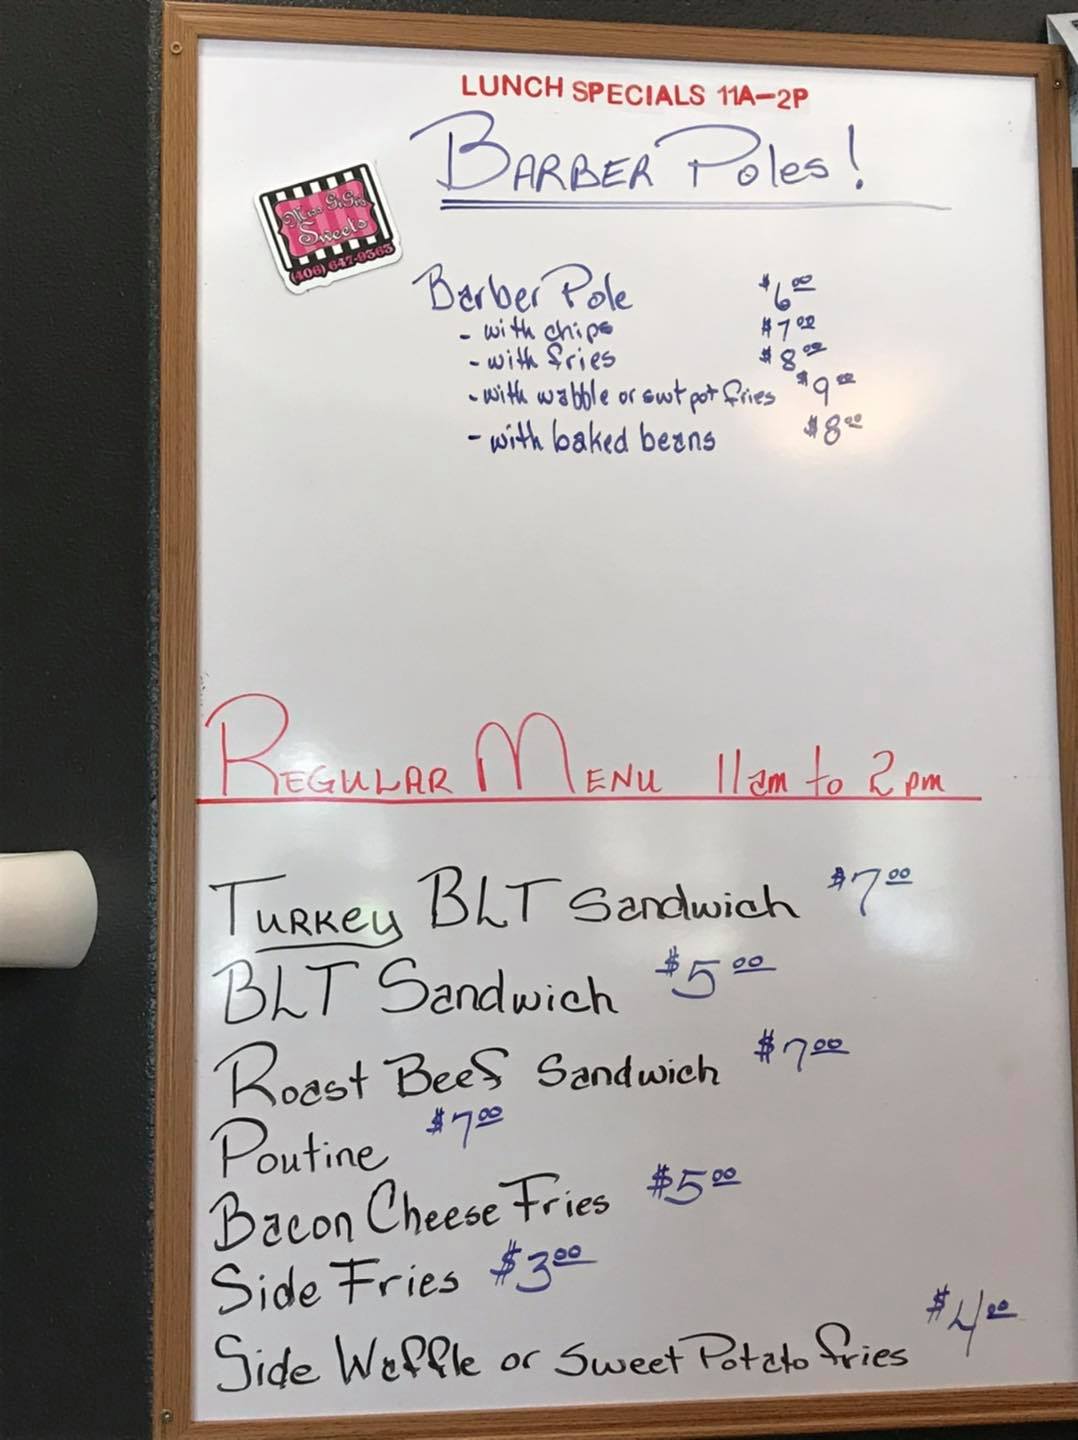 LUNCH SPECIALS 11A-2P
BARBER Poles!
Miss GiGi's
Sweets
(406) 647-9363
Barber Pole $6.00
- with chips $7.00
- with fries $8.00
- with wabble or swt pot fries $9.00
- with baked beans $8.00
REGULAR MENU 11am to 2pm
TURKEY BLT Sandwich $7.00
BLT Sandwich $5.00
Roast Beef Sandwich $7.00
Poutine $7.00
Bacon Cheese Fries $5.00
Side Fries $3.00
Side Waffle or Sweet Potato fries $4.00